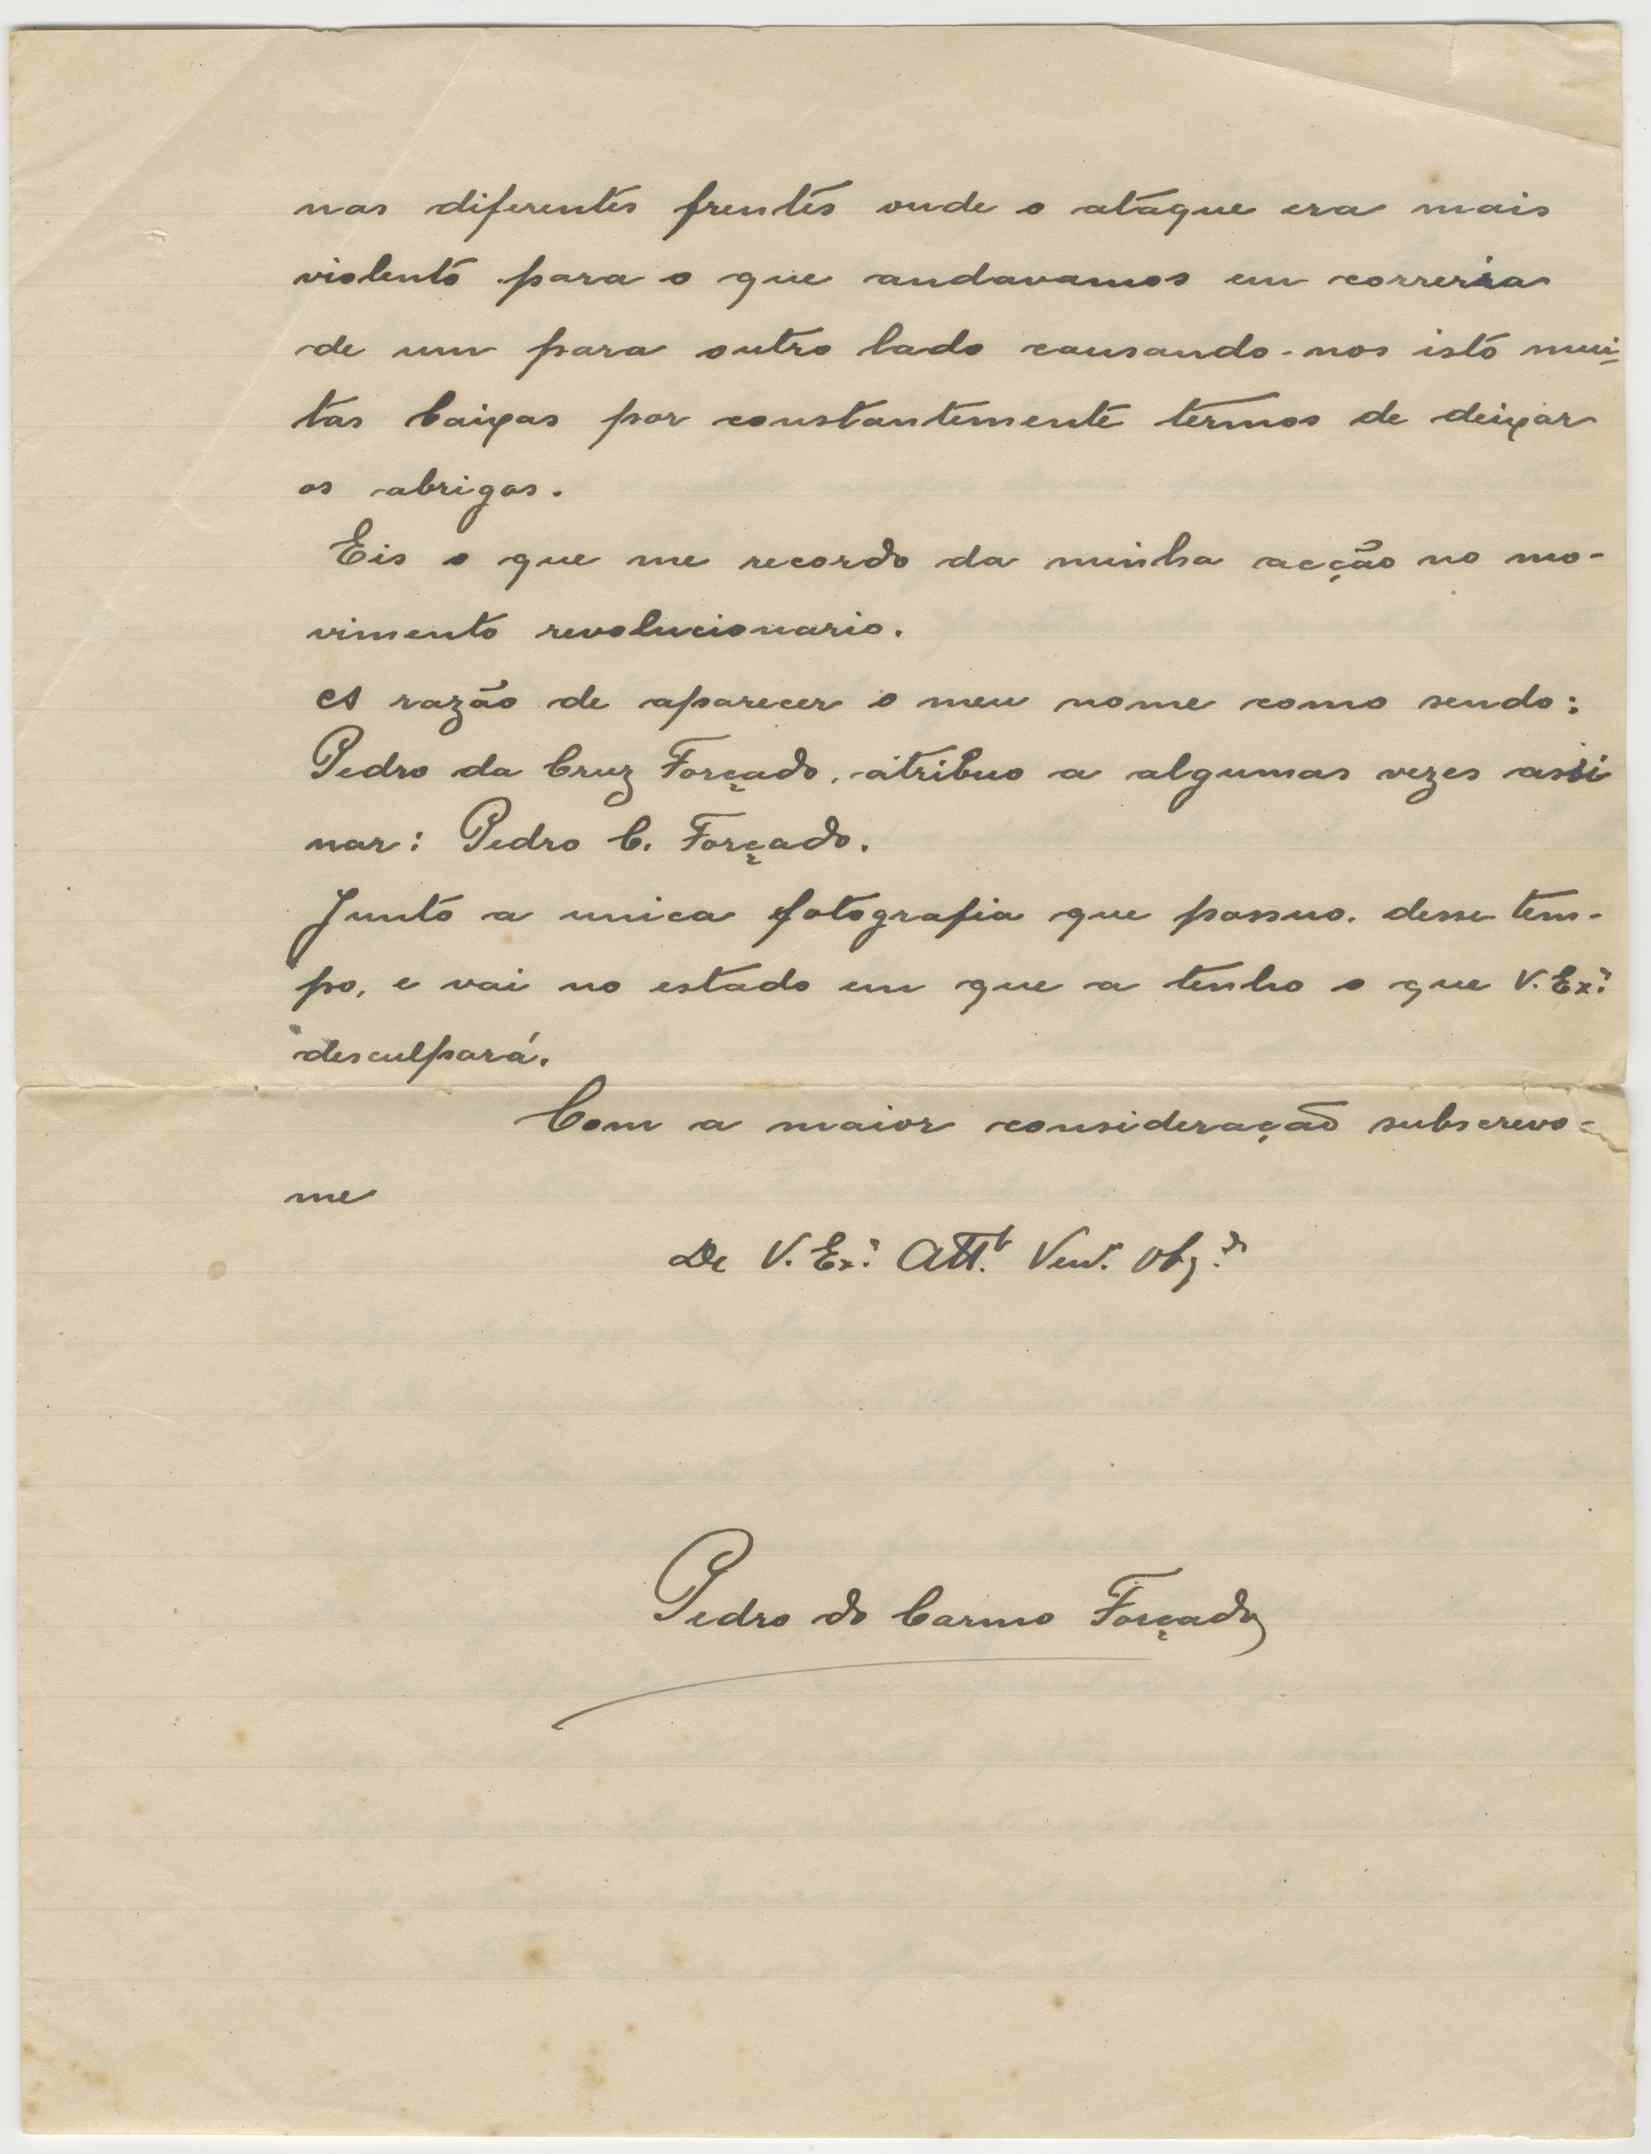 nas diferentes frentes onde o ataque era mais
violento para o que andavamos em correria
de um para outro lado causando-nos isto mui-
tas baixas por constantemente termos de deixar
os abrigos.
Eis o que me recordo da minha acção no mo-
vimento revolucionario.
A razão de aparecer o meu nome como sendo:
Pedro da Cruz Forçado, atribuo a algumas vezes assi
nar: Pedro C. Forçado.
Junto a unica fotografia que possuo, desse tem-
po, e vai no estado em que a tenho o que V. Exª
desculpará.
Com a maior consideração subscrevo-
me
De V. Exª Attº Venr. Obgdo
Pedro do Carmo Forçado